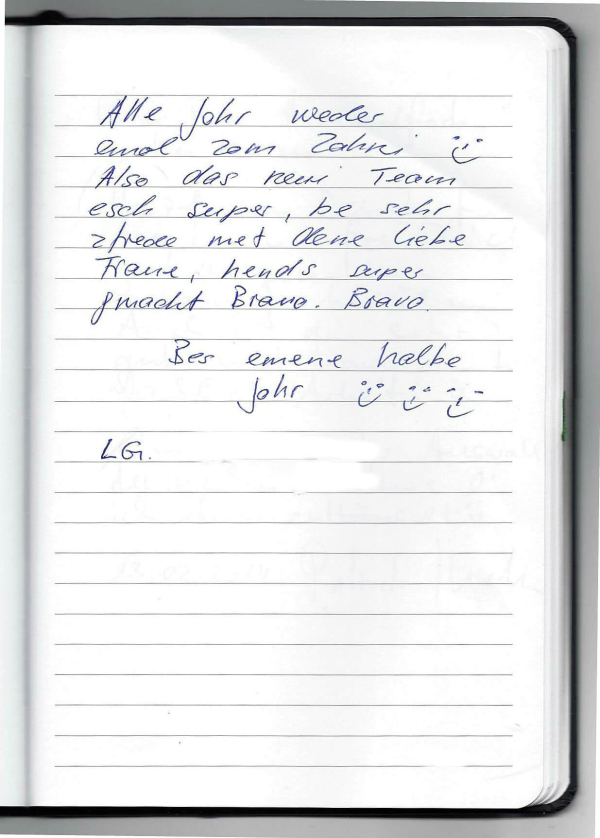 Alle Johr weder
emol zom Zahni
Also das neui Team
esch super, be sehr
zfrede met dene liebe
Fraue, hends super
gmacht Bravo. Bravo.
Bes emene halbe
Johr
LG.